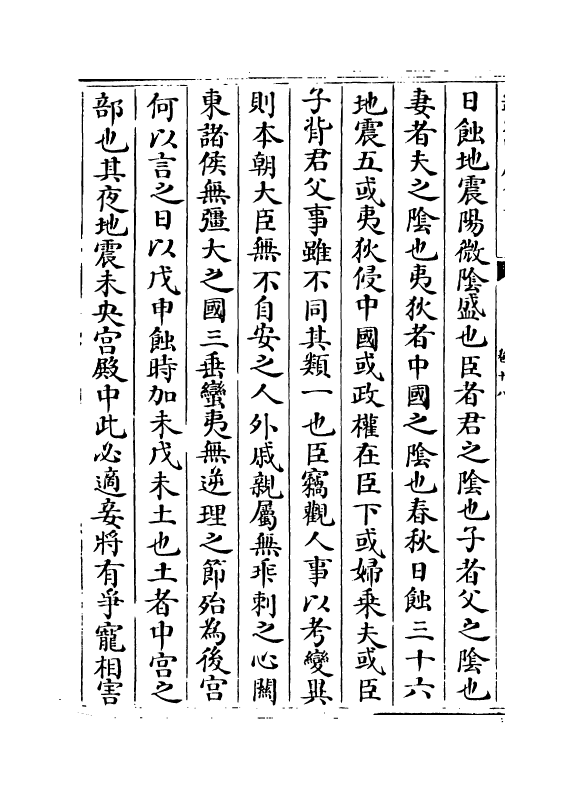 日蝕地震陽微陰盛也臣者君之陰也子者父之陰也
妻者夫之陰也夷狄者中國之陰也春秋日蝕三十六
地震五或夷狄侵中國或政權在臣下或婦乗夫或臣
子背君父事雖不同其類一也臣竊觀人事以考變異
則本朝大臣無不自安之人外戚親屬無乖剌之心關
東諸侯無彊大之國三垂蠻夷無逆理之節殆為後宫
何以言之日以戊申蝕時加未戊未土也土者中宫之
部也其夜地震未央宫殿中此必適妾將有爭寵相害
卷十八